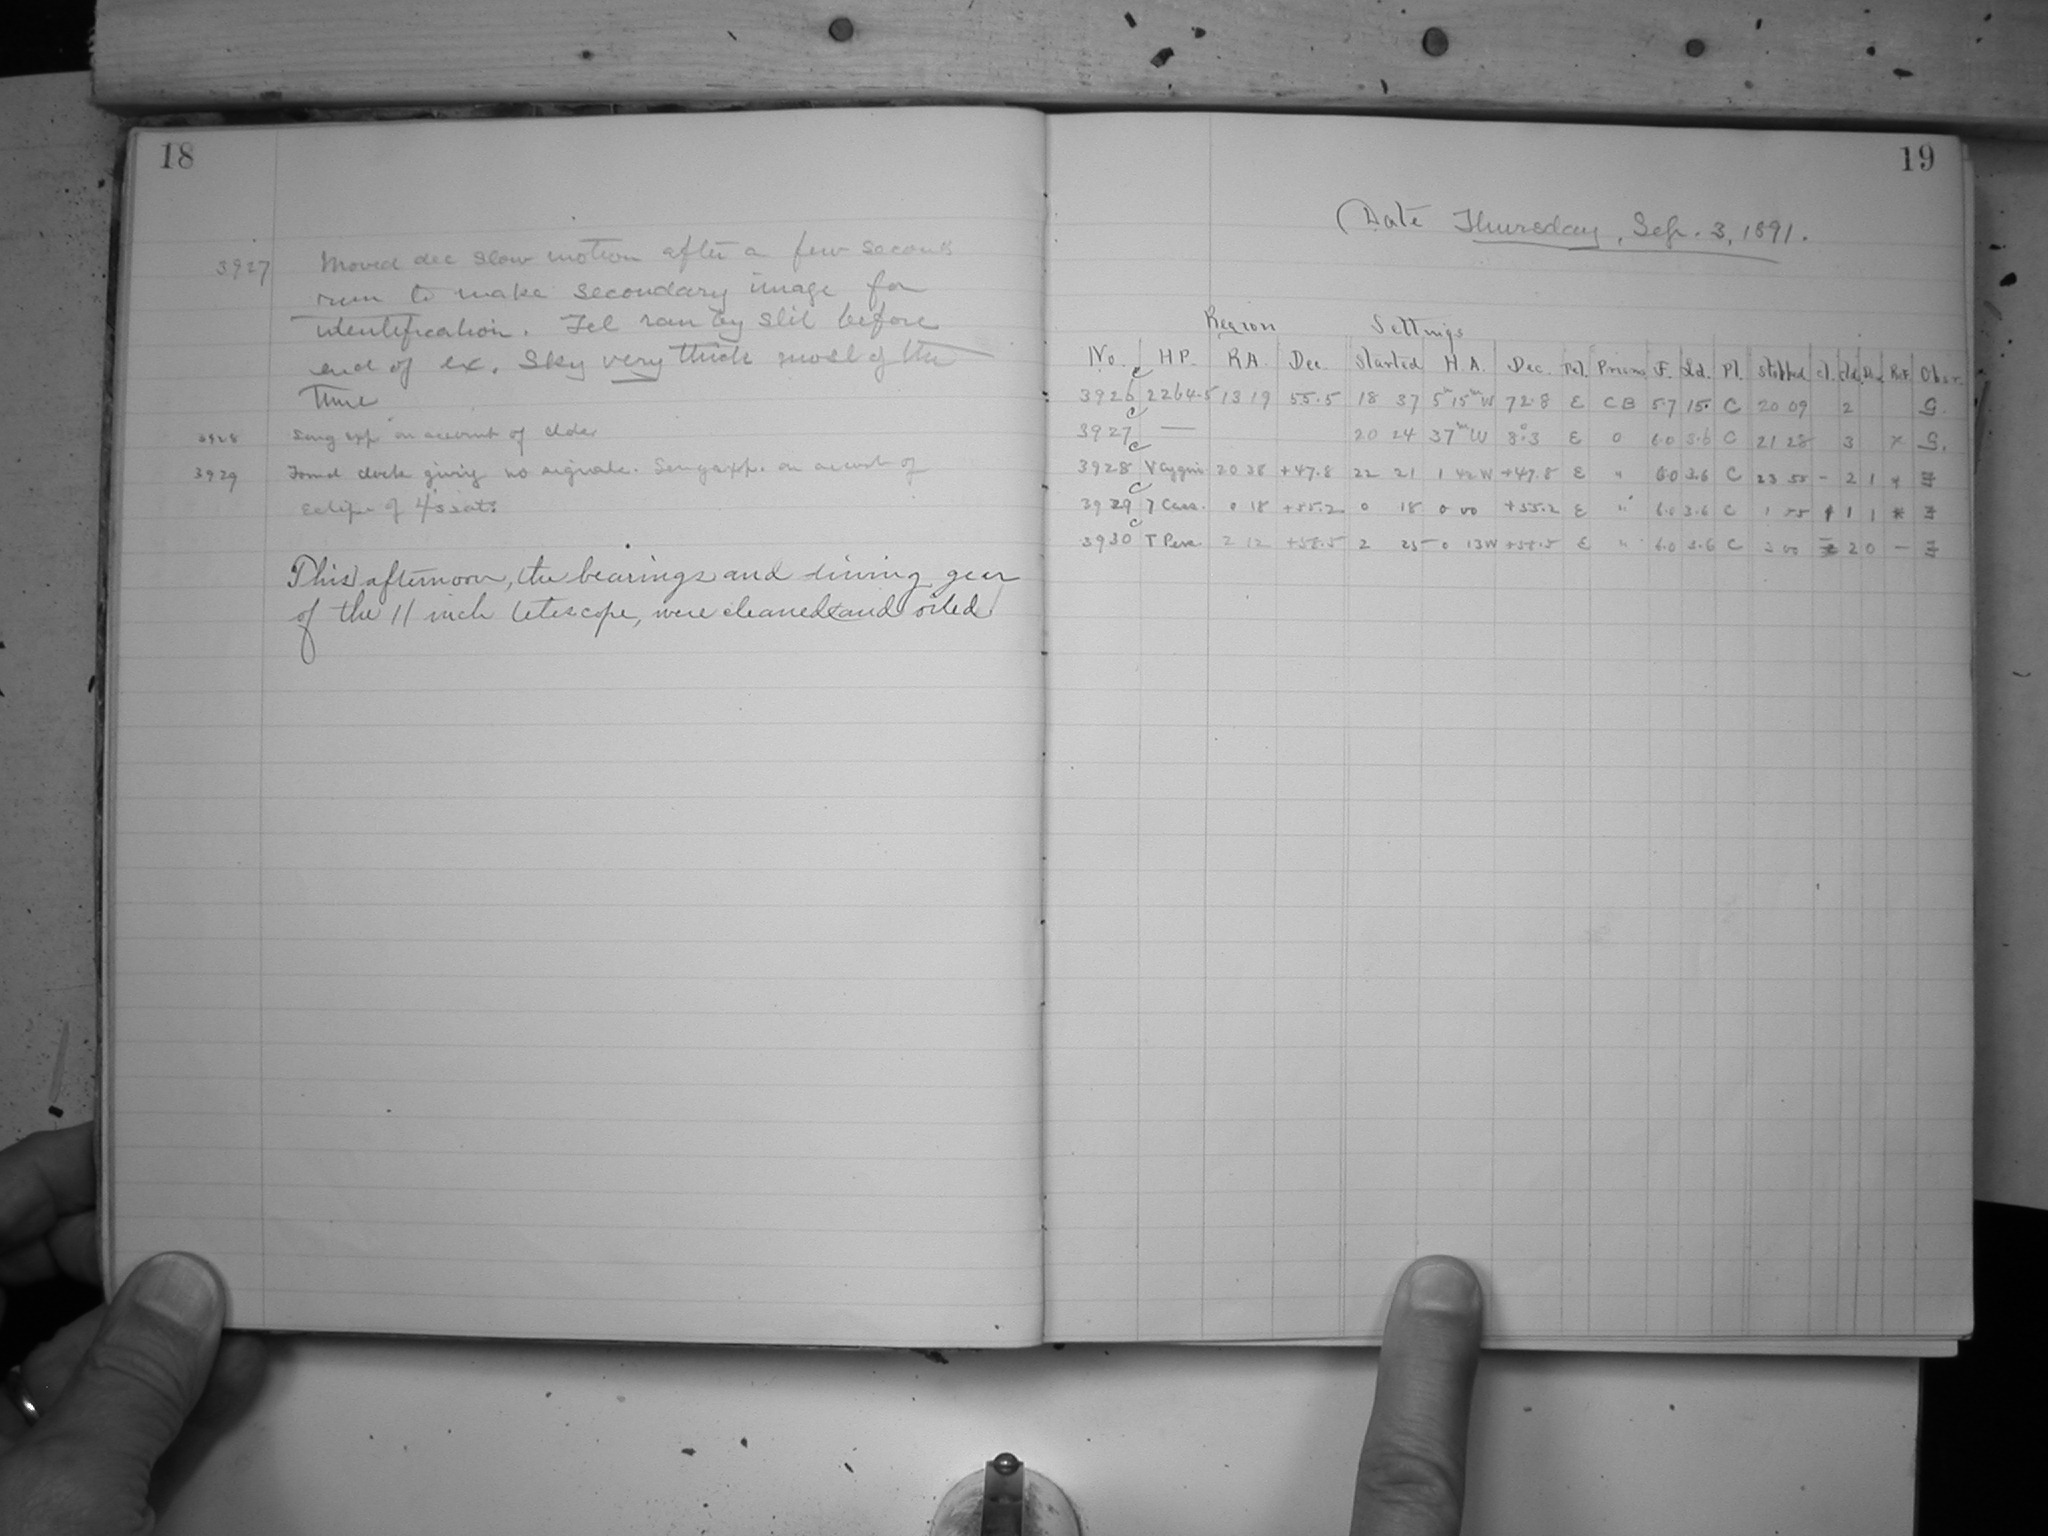 18
3927 Moved dec slow motion after a few seconds
run to make secondary image for
identification. Tel ran by slit before
end of ex. Sky very thick most of the
Time
3928 Long exp on account of clds.
3929 Found clock giving no signals. Long exp. on account of
eclipse of 4's sat.
This afternoon, the bearings and driving gear
of the 11 inch telescope, were cleaned and oiled
19
Date Thursday, Sep. 3, 1891.
Region Settings
No. H.P. R.A. Dec. Started H.A. Dec. Pol. Prisms F. Pl. Stopped Cl. Clds Ref. Obsr.
3926 c 2264.5 13 19 55.5 18 37 5 15 W 72.8 E CB 5.7 15. C 20 09 2 G.
3927 c — 20 24 37m W 8.3 E 0 6.0 3.6 C 21 28 3 x G.
3928 c V Cygni 20 38 +47.8 22 21 1 42 W +47.8 E " 6.0 3.6 C 23 55 – 2 1
3929 c T Cass. 0 18 +55.2 0 18 0 00 +55.2 E " 6.0 3.6 C 1 55 1 1
3930 c T Pers. 2 12 +58.5 2 25 0 13 W +58.5 E " 6.0 3.6 C 3 00 2 0 –